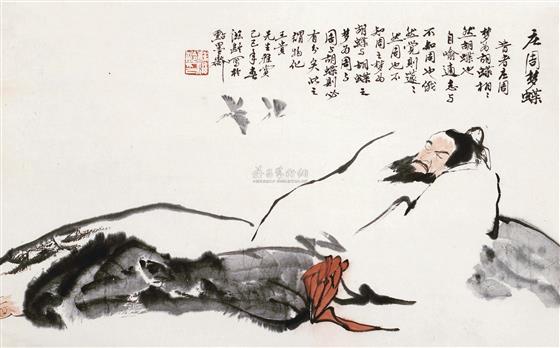 庄周梦蝶
昔者庄周
梦为胡蝶栩々
然胡蝶也
自喻適志与
不知周也俄
然觉则蘧々
然周也不
知周之梦为
胡蝶与胡蝶之
梦为周与
周与胡蝶则必
有分矣此之
谓物化
先生雅赏
己巳年春